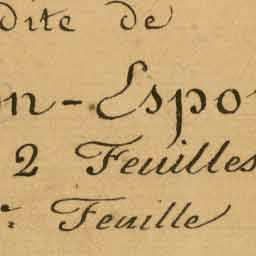 dite de
on-Espo
2 Feuilles
e: Feuille